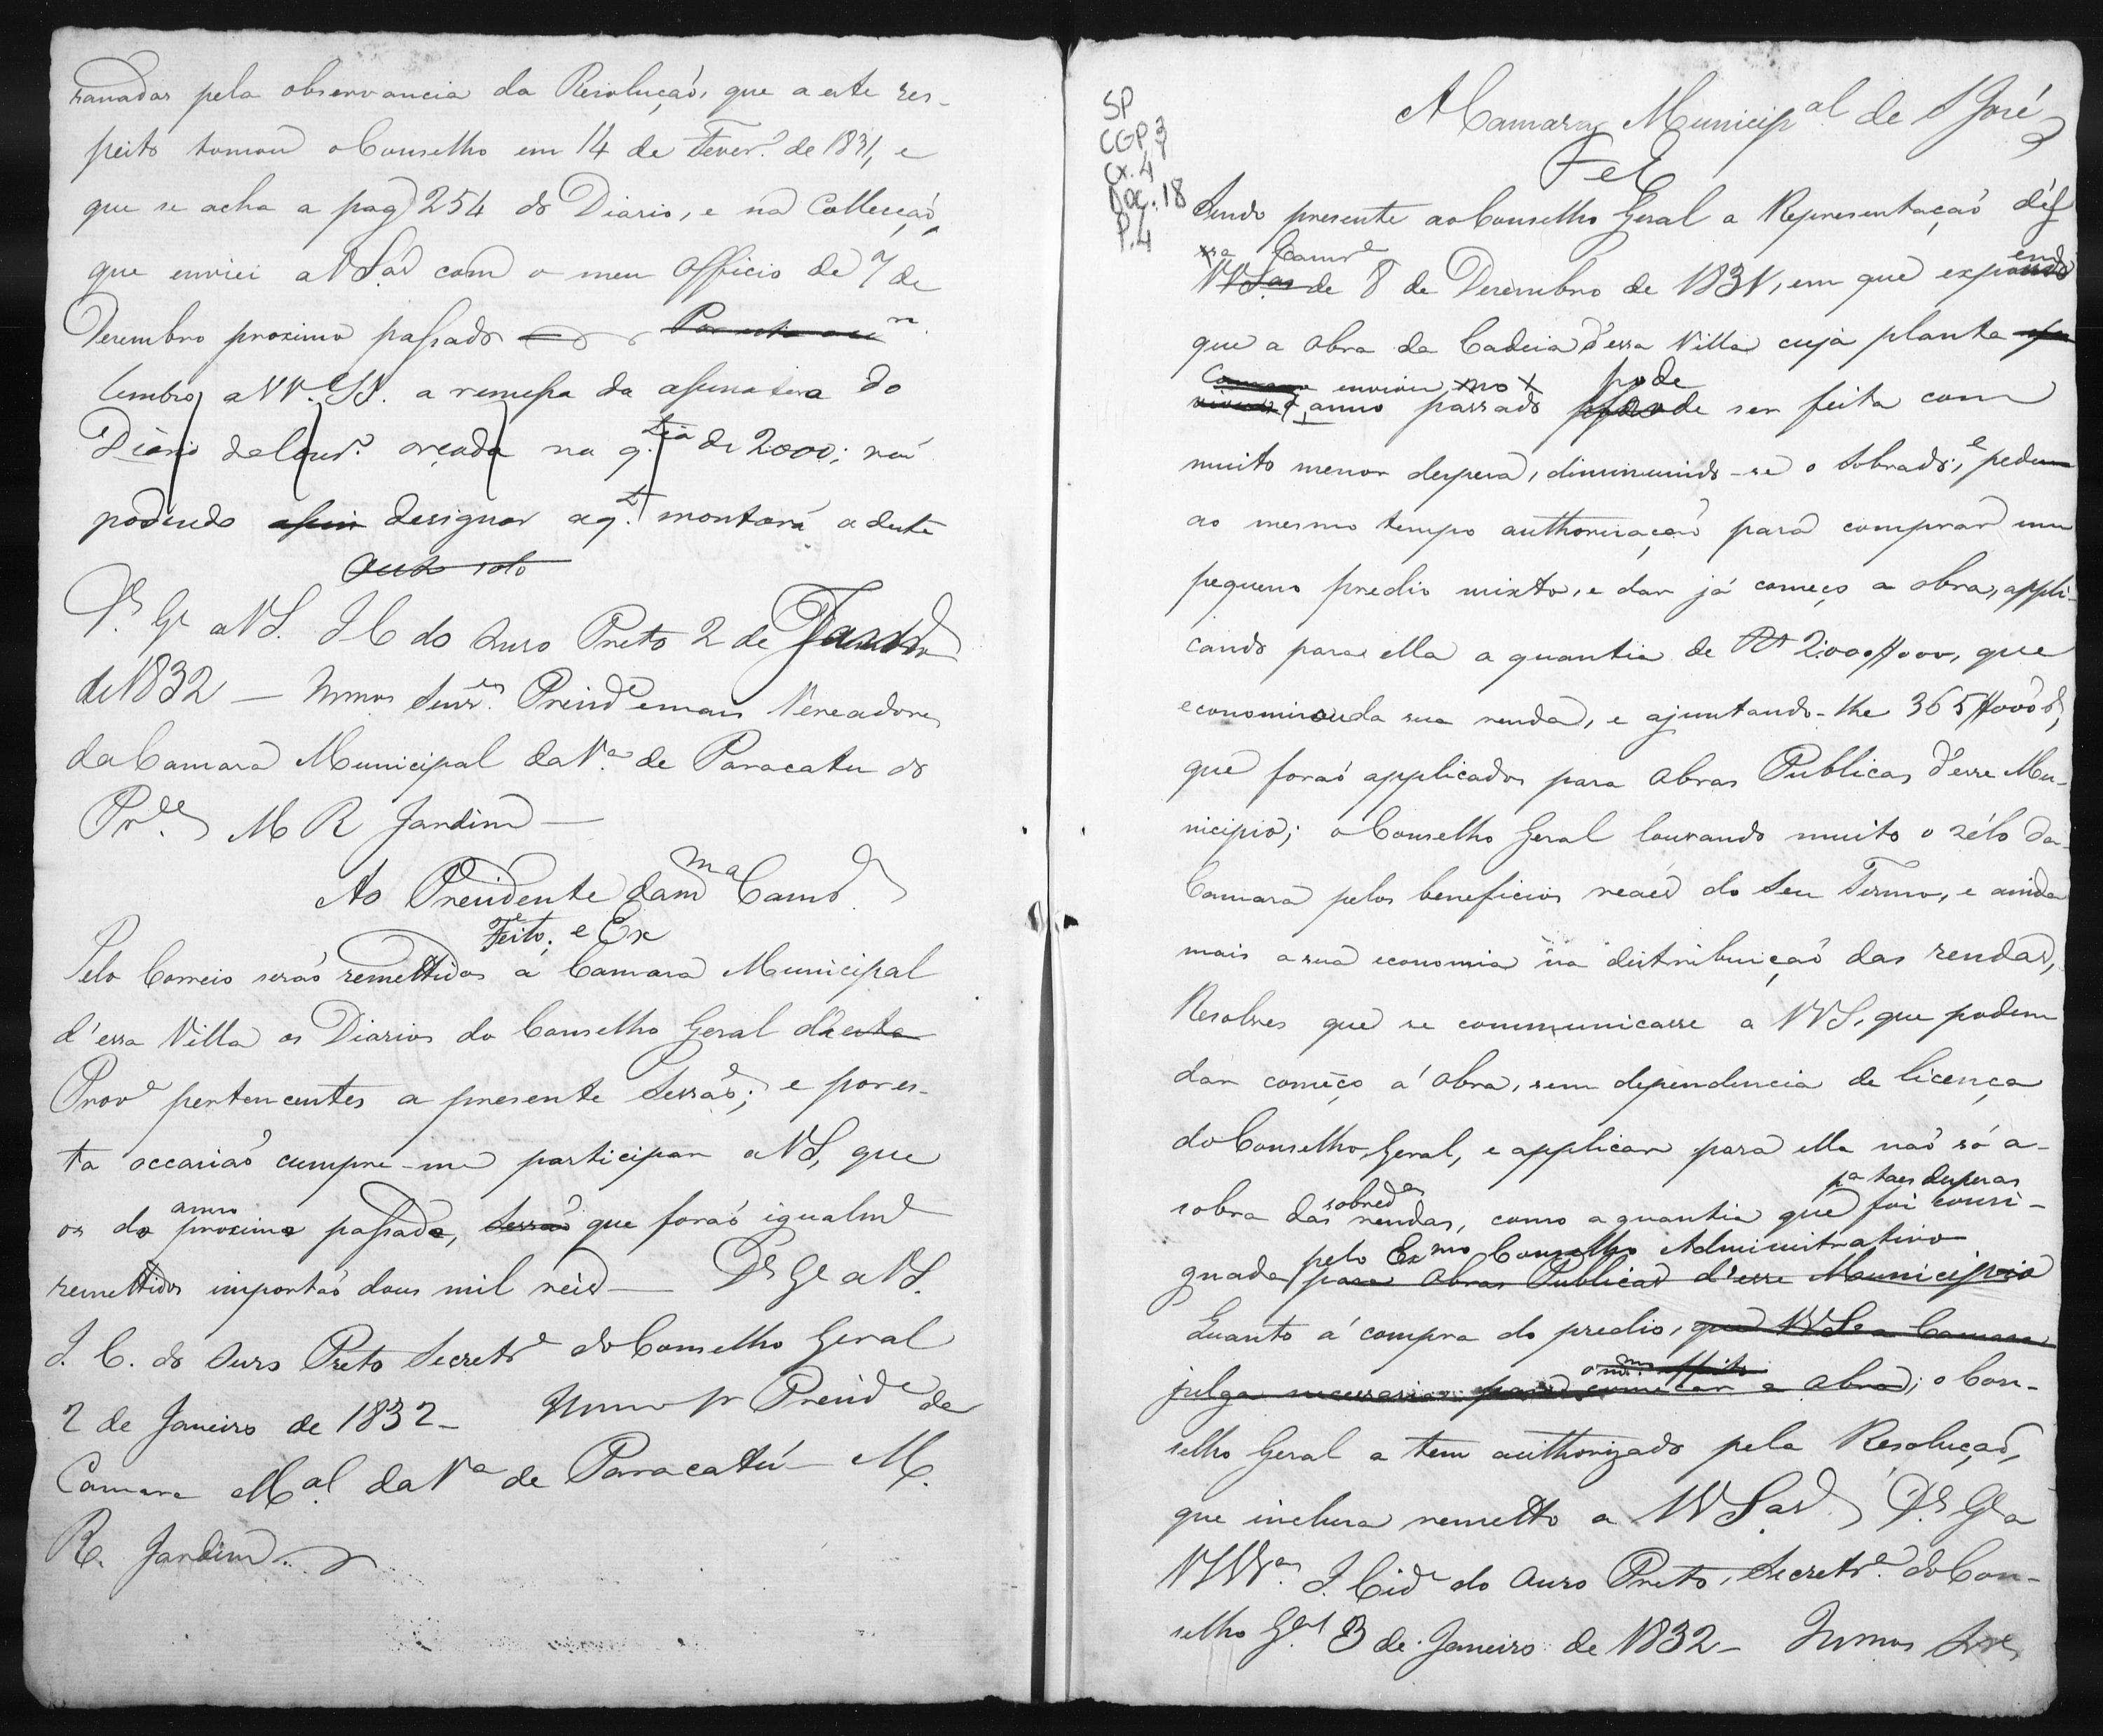 sanadas pela observancia da Resoluçaõ, que a este res-
peito tomou o Conselho em 14 de Fever.º de 1831, e
que se acha a pag 254 do Diario, e na Collecçaõ,
que enviei a VSas com o meu Officio de 7 de
Dezembro proximo passado
lembro a VV. SS. a remessa da assinatura do
Diario do Cons.º orçada na q.tia de 2000; naõ
podendo assim designar a q.to montará a deste
Ds. Ge a VS. I C do Ouro Preto 2 de Janeiro
de 1832 — Illmos Senr.es Presid.e e mais Vereadores
da Camara Municipal da V.a de Paracatu do
Pr.e M R Jardim —
Ao Presidente da m.ma Camr.a
Feito. e Ex
Pelo Correio seraõ remettidos á Camara Municipal
d'essa Villa os Diarios do Conselho Geral desta
Prov.a pertencentes a presente Sessaõ; e por es-
ta occasiaõ cumpre-me participar a VS, que
anno
os do proximo passado, Sessaõ que foraõ igualm.e
remettidos importaõ dous mil reis — Ds Ge a VS.
I. C. do Ouro Preto Secretr.a do Conselho Geral
2 de Janeiro de 1832 — Illmo Sr Presid.e da
Camara M.al da V.a de Paracatú — M.
R. Jardim.
SP
CGP,3
Cx. 4
Doc. 18
P. 4
A Camara Municipal de S José
F e E
Sendo presente ao Conselho Geral a Representaçaõ d'es
sa Camr.a
VVSas de 8 de Dezembro de 1831, em que expoendo
que a obra da Cadeia d'essa Villa cuja planta
Camara enviou no pode
anno passado pode ser feita com
muito menor despesa, diminuindo-se o sobrado, e pedem
ao mesmo tempo authorizaçaõ para comprar um
pequeno predio mixto, e dar já começo a obra, appli-
cando para ella a quantia de Rs 2:000//000, que
economisou da sua renda, e ajuntando-lhe 365//000 rs,
que foraõ applicados para Obras Publicas d'esse Mu-
nicipio; o Conselho Geral louvando muito o zélo da
Camara pelos beneficios reaes do Seu Termo, e ainda
mais a sua economia na distribuiçaõ das rendas,
Resolveo que se communicasse a VVS, que podem
dar começo á obra, sem dependencia de licença
do Conselho Geral, e applicar para ella naõ só a
sobred.a p.a taes despesas
sobra das rendas, como a quantia que foi consi-
pelo Ex.mo Conselho Administrativo
gnada para Obras Publicas d'esse Municipio
Quanto á compra do predio, que VVS a Camara
o m.mo effeito
julga necessario para começar a obra; o Con-
selho Geral a tem authorizado pela Resoluçaõ,
que inclusa remetto a VV Sas. Ds. Ge a
VVSas. I. Cid.e do Ouro Preto, Secretr.a do Con-
selho G.al 3 de Janeiro de 1832 — Illmos Sres